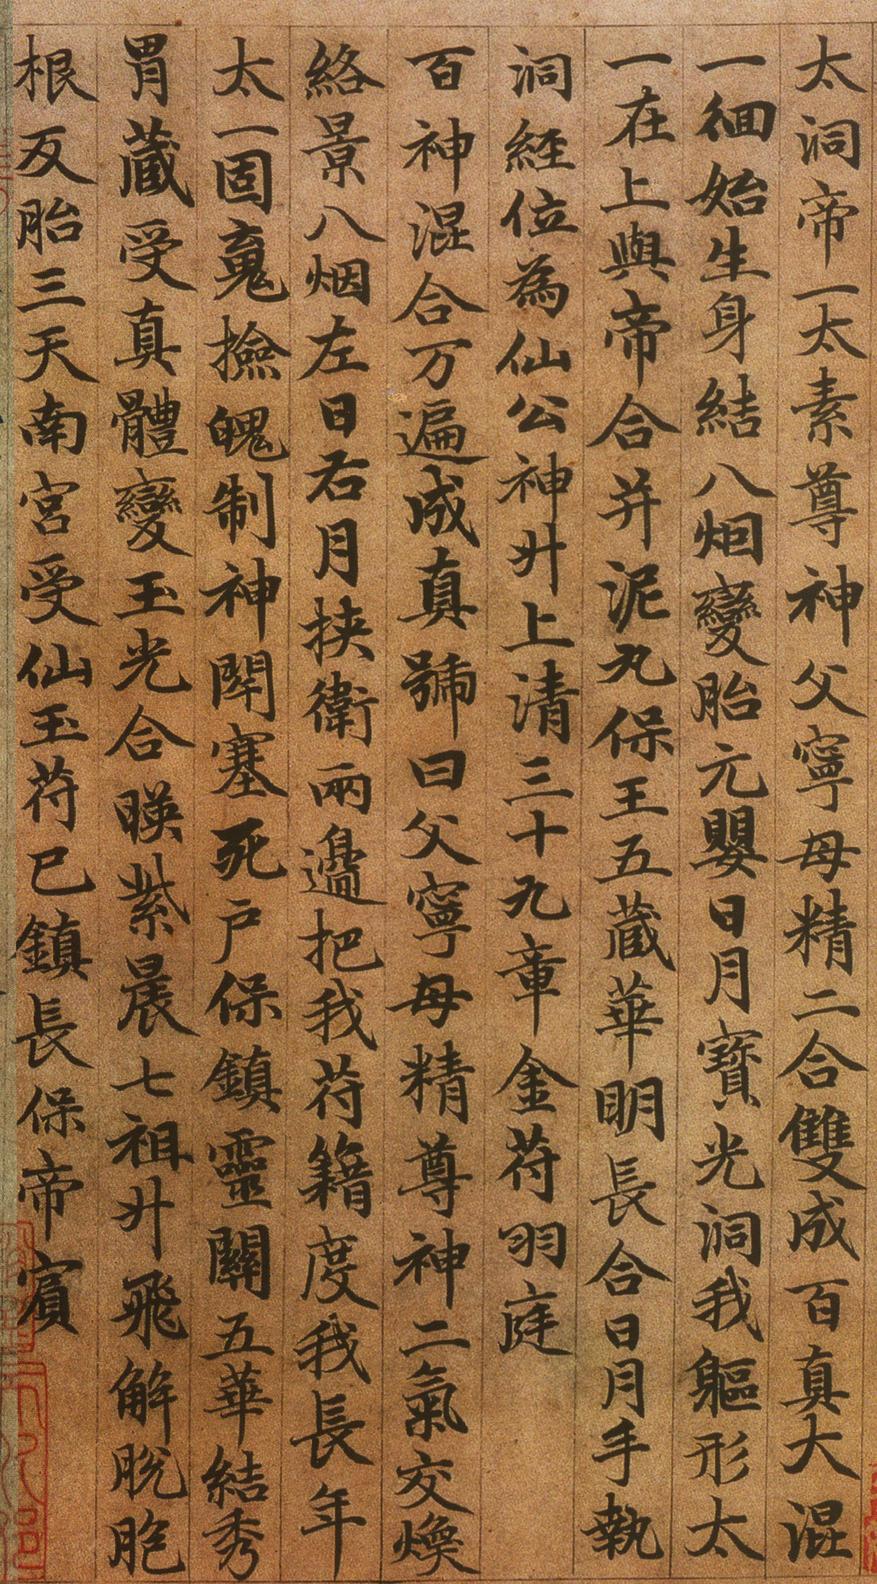 太洞帝一太素尊神父寧母精二合雙成百真大混
一徊始生身結八烟變胎元嬰日月寶光洞我軀形太
一在上與帝合并泥丸保王五蔵華明長合日月手執
洞經位為仙公神升上清三十九章金苻羽庭
百神混合万遍成真號曰父寧母精尊神二氣交煥
絡景八烟左日右月挟衛兩邊把我苻籍度我長年
太一固䰟撿魄制神閉塞死户保鎮靈關五華結秀
胃蔵受真體變玉光合暎紫晨七祖升飛解脫胞
根反胎三天南宮受仙玉苻已鎮長保帝賔